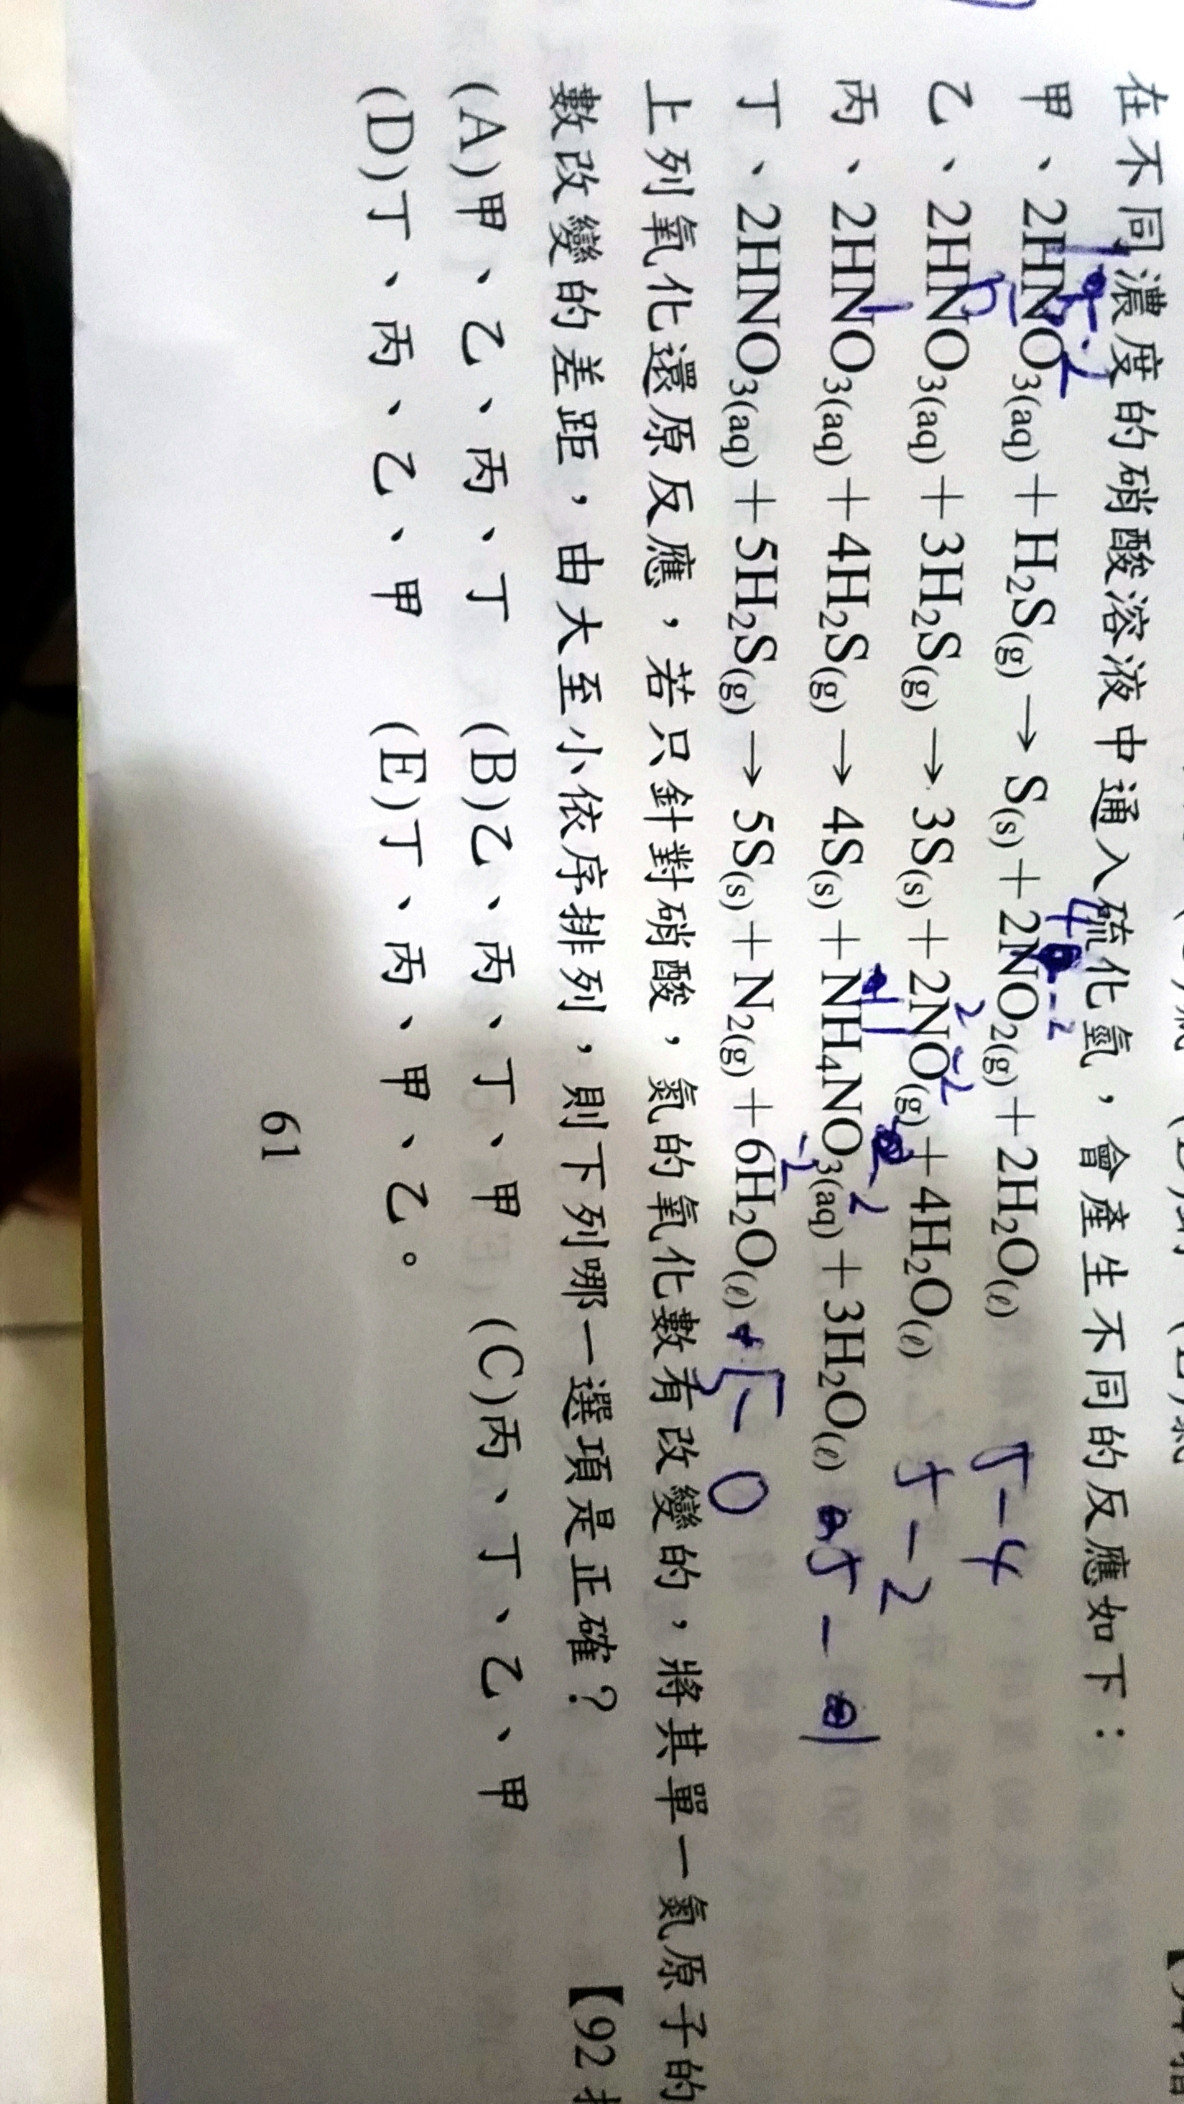 在不同濃度的硝酸溶液中通入硫化氫，會產生不同的反應如下：
甲、2HNO3(aq)＋H2S(g)→S(s)＋2NO2(g)＋2H2O(ℓ) 5-4
乙、2HNO3(aq)＋3H2S(g)→3S(s)＋2NO(g)＋4H2O(ℓ) 5-2
丙、2HNO3(aq)＋4H2S(g)→4S(s)＋NH4NO3(aq)＋3H2O(ℓ)
丁、2HNO3(aq)＋5H2S(g)→5S(s)＋N2(g)＋6H2O(ℓ) 5-0
上列氧化還原反應，若只針對硝酸，氮的氧化數有改變的，將其單一氮原子的
數改變的差距，由大至小依序排列，則下列哪一選項是正確？【92
(A)甲、乙、丙、丁 (B)乙、丙、丁、甲 (C)丙、丁、乙、甲
(D)丁、丙、乙、甲 (E)丁、丙、甲、乙。
61